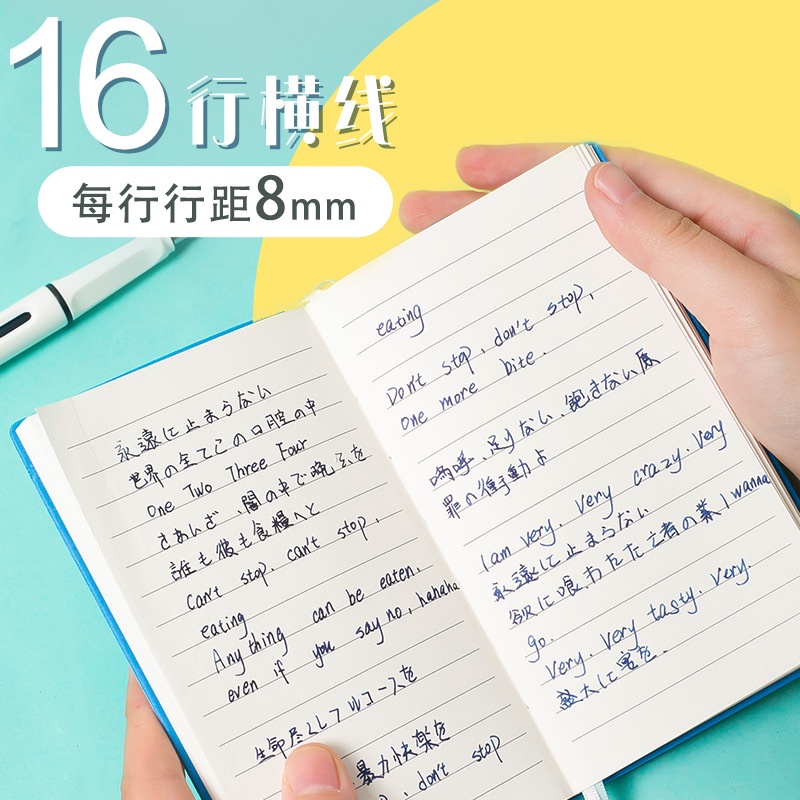 16行横线
每行行距8mm
永遠に止まらない
世界の全てこの口腔の中
One Two Three Four
さあいざ、闇の中で喰らえを
誰も彼も食糧へと
Can't stop. can't stop,
eating
Any thing can be eaten.
even if you say no, hahaha
生命尽くしてフルコースを
暴力快楽を
don't stop
eating
Don't stop, don't stop,
One more bite.
嗚呼、足りない、飽きない
罪の衝動よ
I am very. very crazy. very
永遠に止まらない
欲に喰われた亡者の業 I wanna
go.
very. very tasty. very.
大に